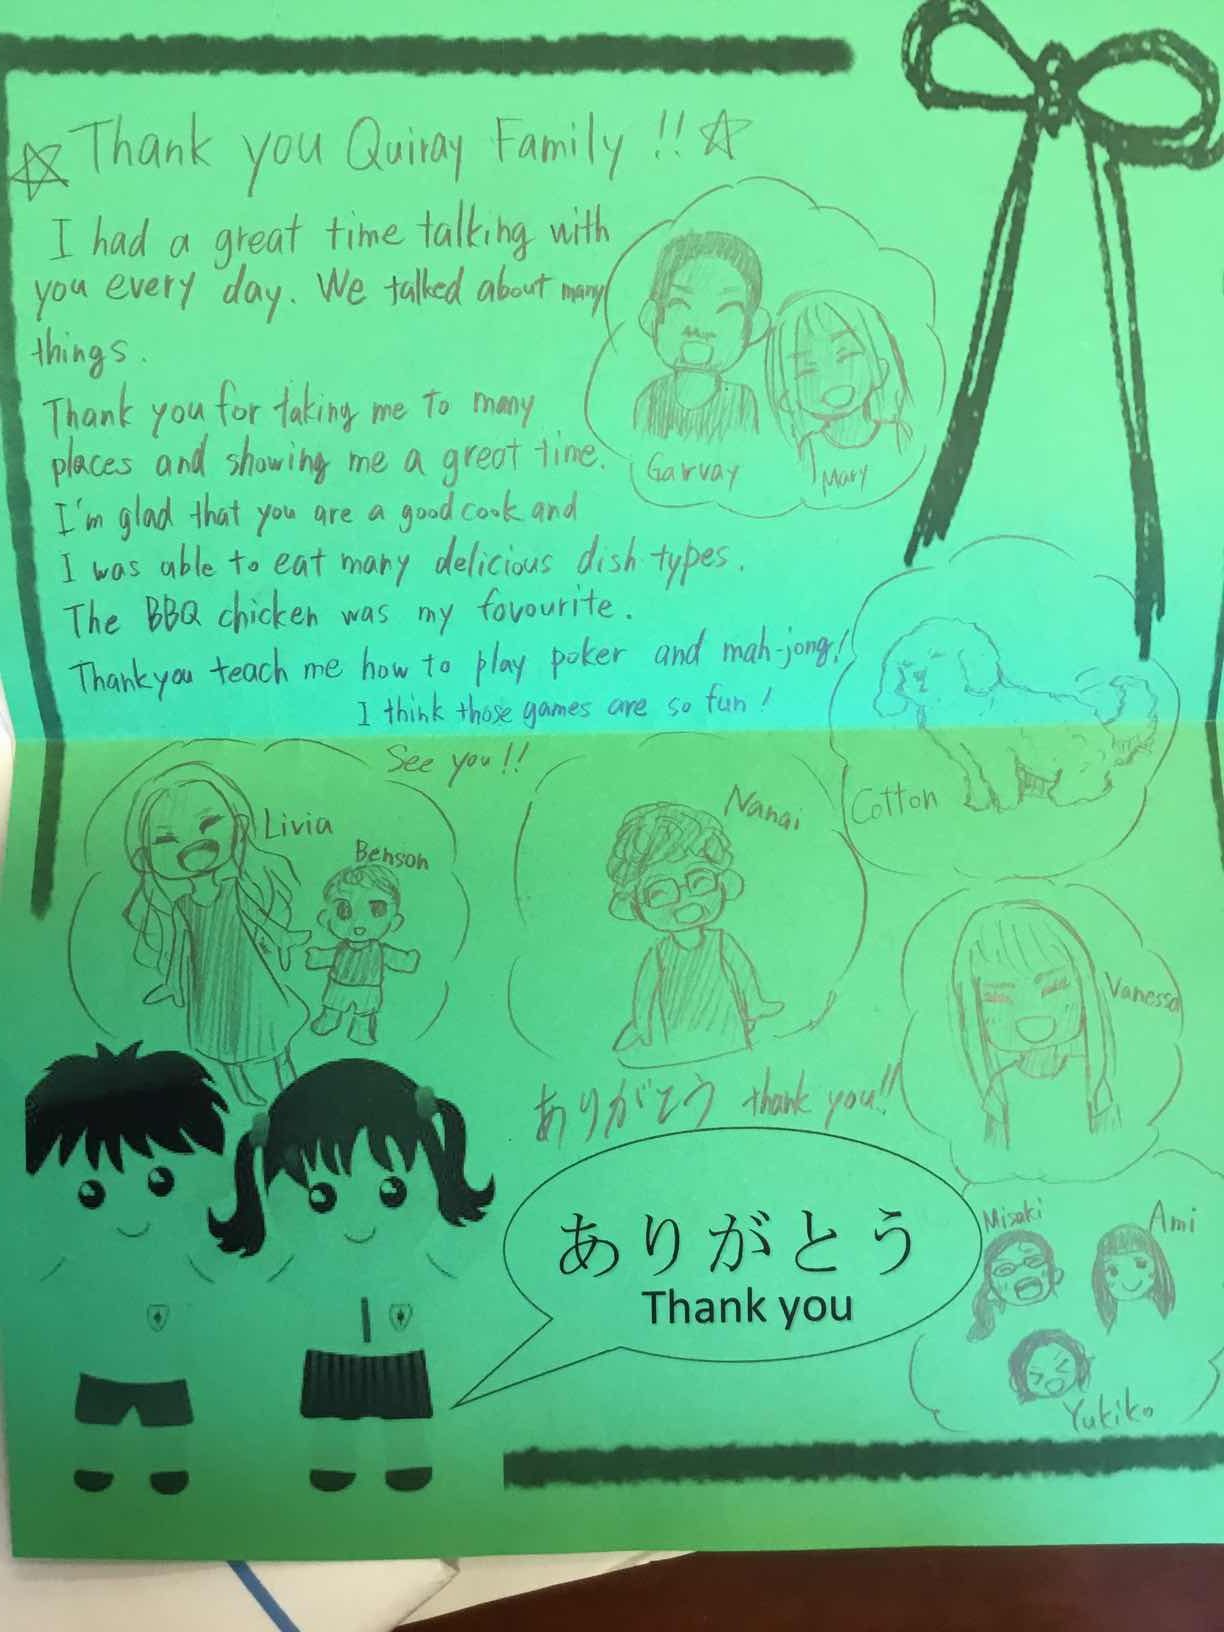 ☆ Thank you Quiray Family !! ☆
I had a great time talking with
you every day. We talked about many
things.
Thank you for taking me to many
places and showing me a great time.
I'm glad that you are a good cook and
I was able to eat many delicious dish types.
The BBQ chicken was my favourite.
Thankyou teach me how to play poker and mah-jong!
I think those games are so fun!
See you!!
Garvay
Mary
Cotton
Livia
Benson
Nanai
Vanessa
ありがとう thank you!!
ありがとう
Thank you
Misaki
Ami
Yukiko